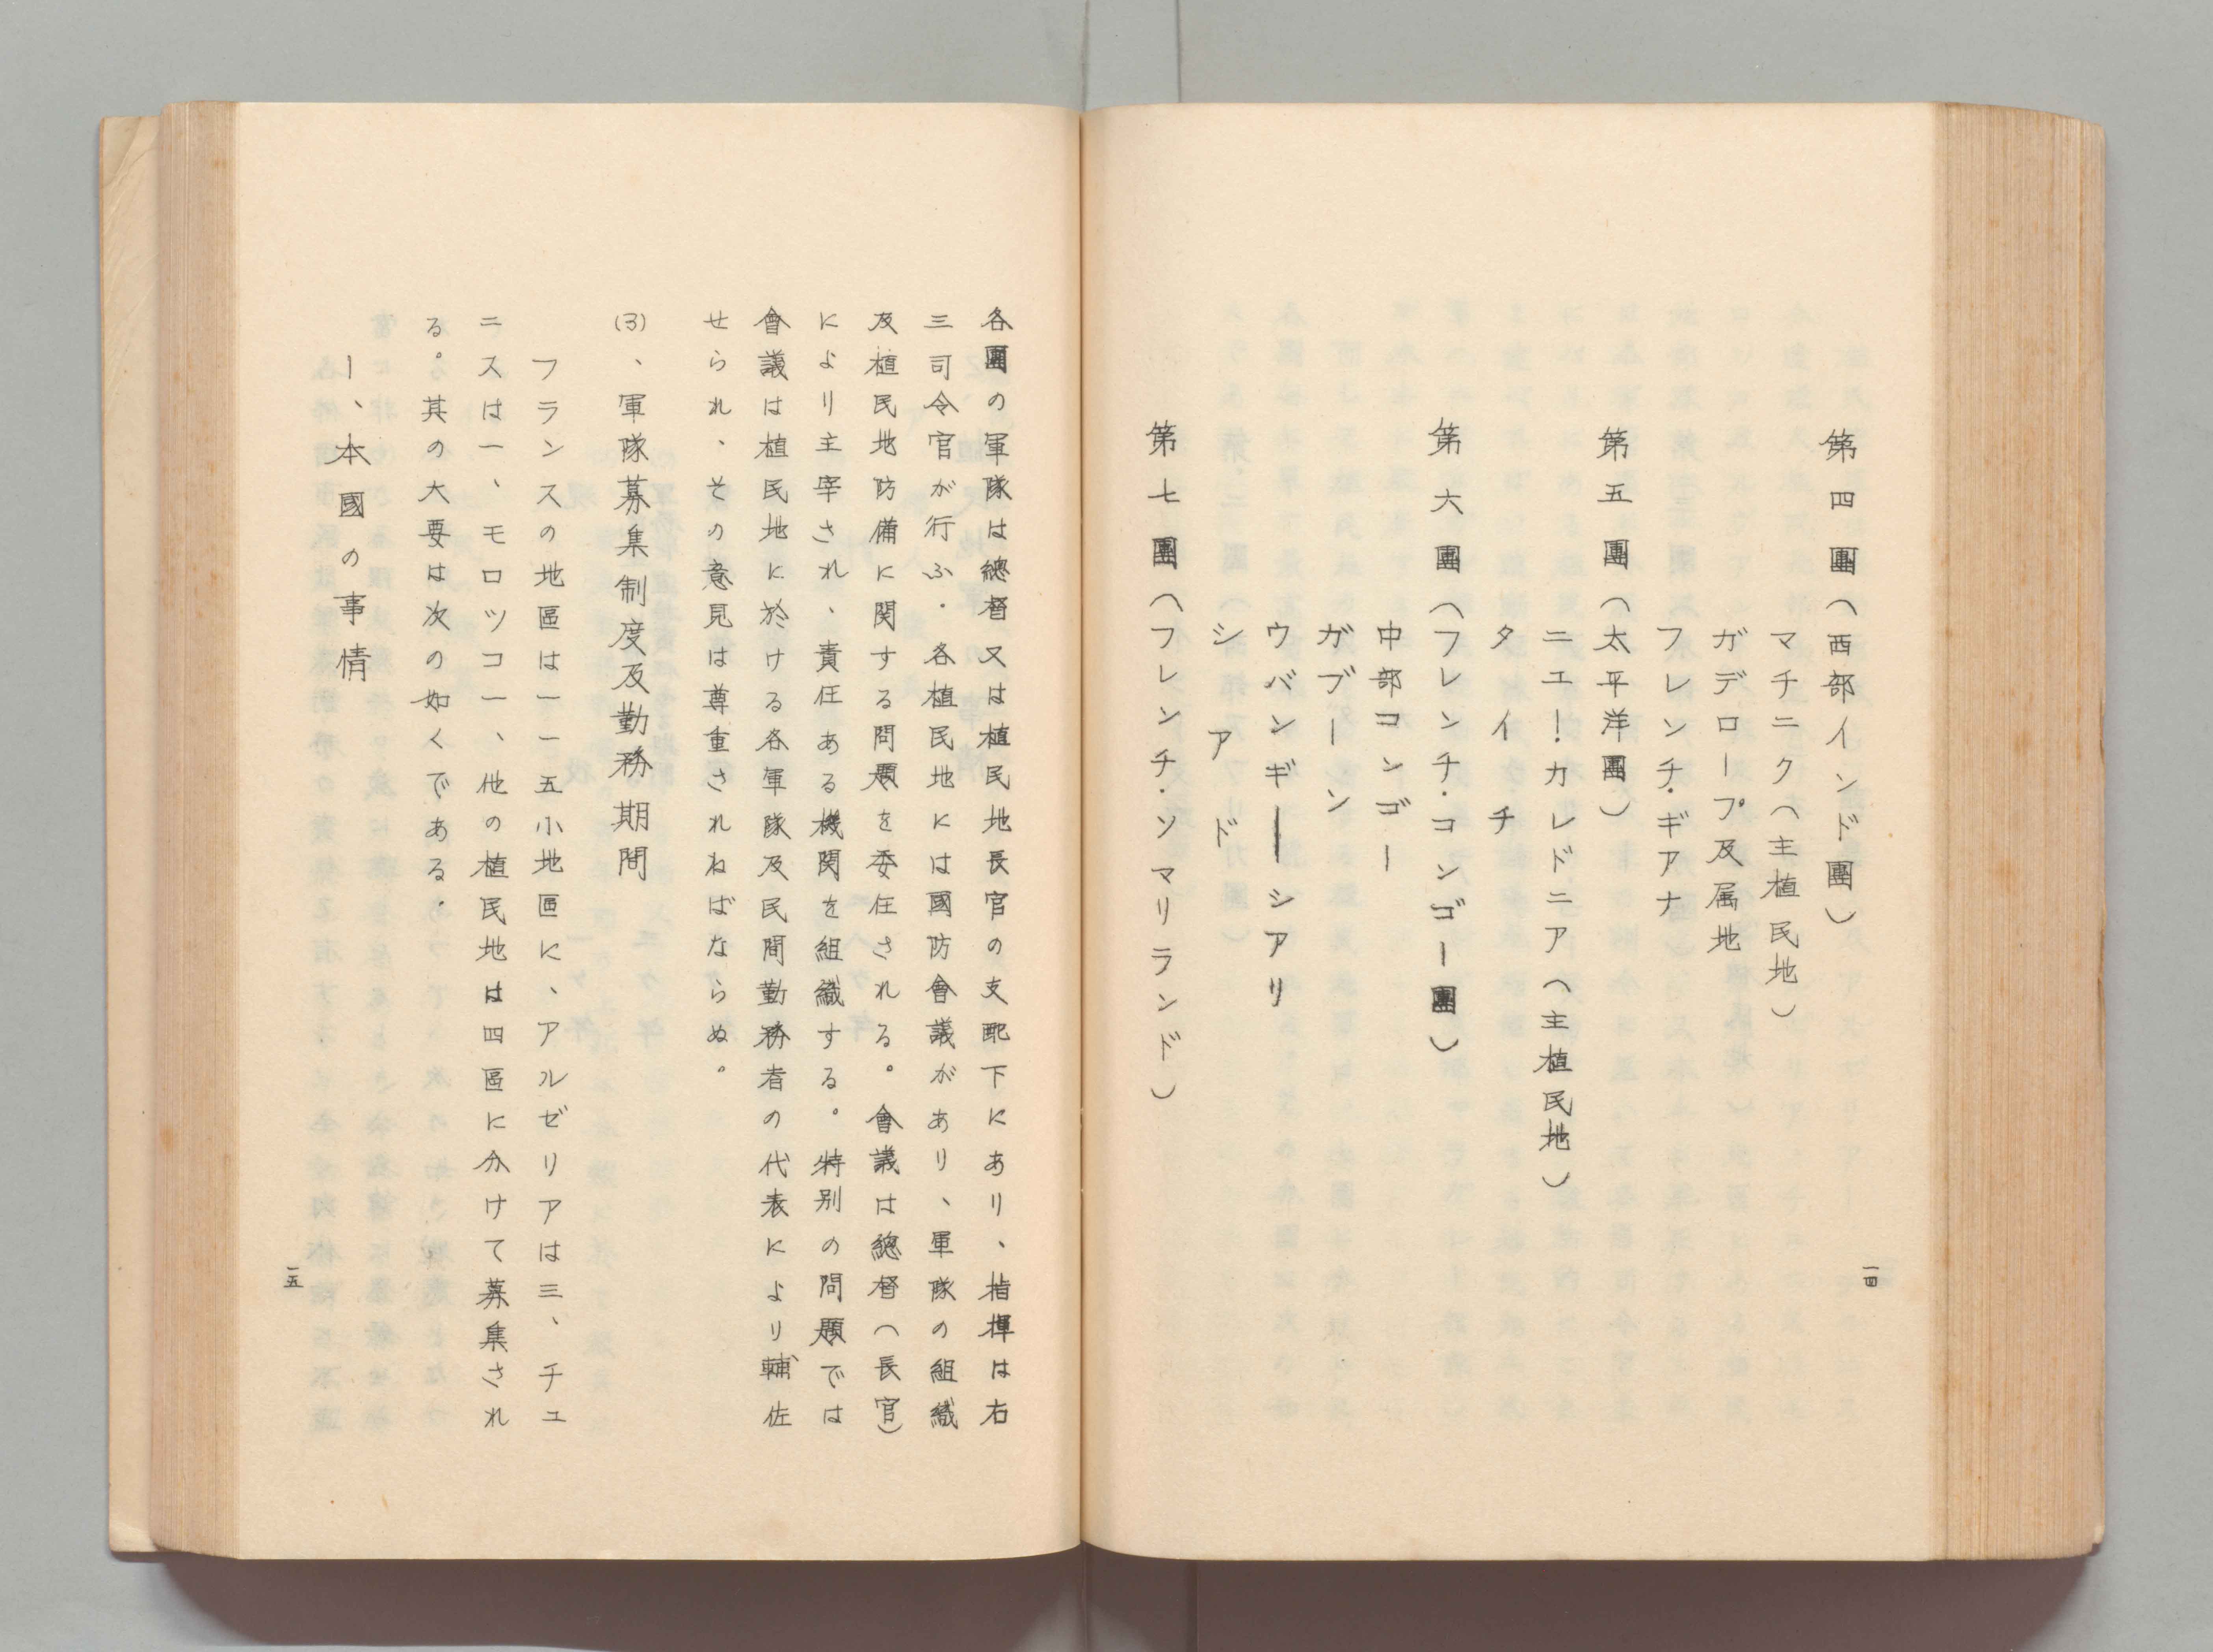 第四團（西部インド團）
マチニク（主植民地）
ガデロープ及属地
フレンチ・ギアナ
第五團（太平洋團）
ニエーカレドニア（主植民地）
タイチ
第六團（フレンチ・コンゴー團）
中部コンゴー
ガブーン
ウバンギーシアリ
シアド
第七團（フレンチ・ソマリランド）
一四
各團の軍隊は總督又は植民地長官の支配下にあり、指揮は右
三司令官が行ふ．各植民地には國防會議があり、軍隊の組織
及植民地防備に関する問題を委任される。會議は總督（長官）
により主宰され、責任ある機関を組織する。特別の問題では
會議は植民地に於ける各軍隊及民間勤務者の代表により輔佐
せられ、その意見は尊重されねばならぬ。
(3)、軍隊募集制度及勤務期間
フランスの地區は一一五小地區に、アルゼリアは三、チュ
ニスは一、モロツコ一、他の植民地は四區に分けて募集され
る。其の大要は次の如くである．
一、本國の事情
一五